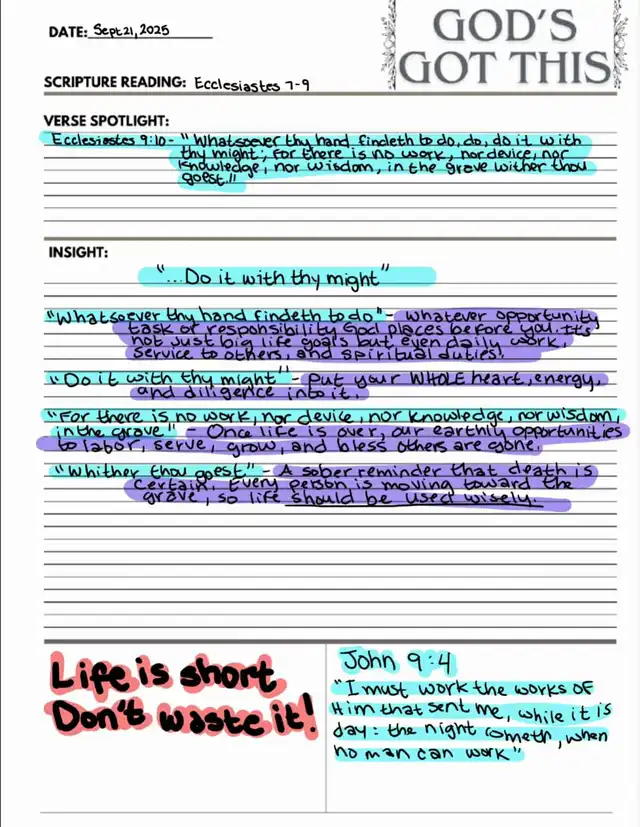 DATE: Sept 21, 2025
GOD'S
GOT THIS
SCRIPTURE READING: Ecclesiastes 7-9
VERSE SPOTLIGHT:
Ecclesiastes 9:10- "Whatsoever thy hand findeth to do, do, do it with
thy might; for there is no work, nor device, nor
knowledge, nor wisdom, in the grave wither thou
goest."
INSIGHT:
"...Do it with thy might"
"Whatsoever thy hand findeth to do" - Whatever opportunity
task or responsibility God places before you. It's
not just big life goals but even daily work,
service to others, and spiritual duties.
"Do it with thy might" - Put your WHOLE heart, energy,
and diligence into it.
"For there is no work, nor device, nor knowledge, nor wisdom,
in the grave" - Once life is over, our earthly opportunities
to labor, serve, grow, and bless others are gone.
"Whither thou goest" - A sober reminder that death is
certain. Every person is moving toward the
grave, so life should be used wisely.
Life is short
Don't waste it!
John 9:4
"I must work the works of
Him that sent me, while it is
day: the night cometh, when
no man can work"